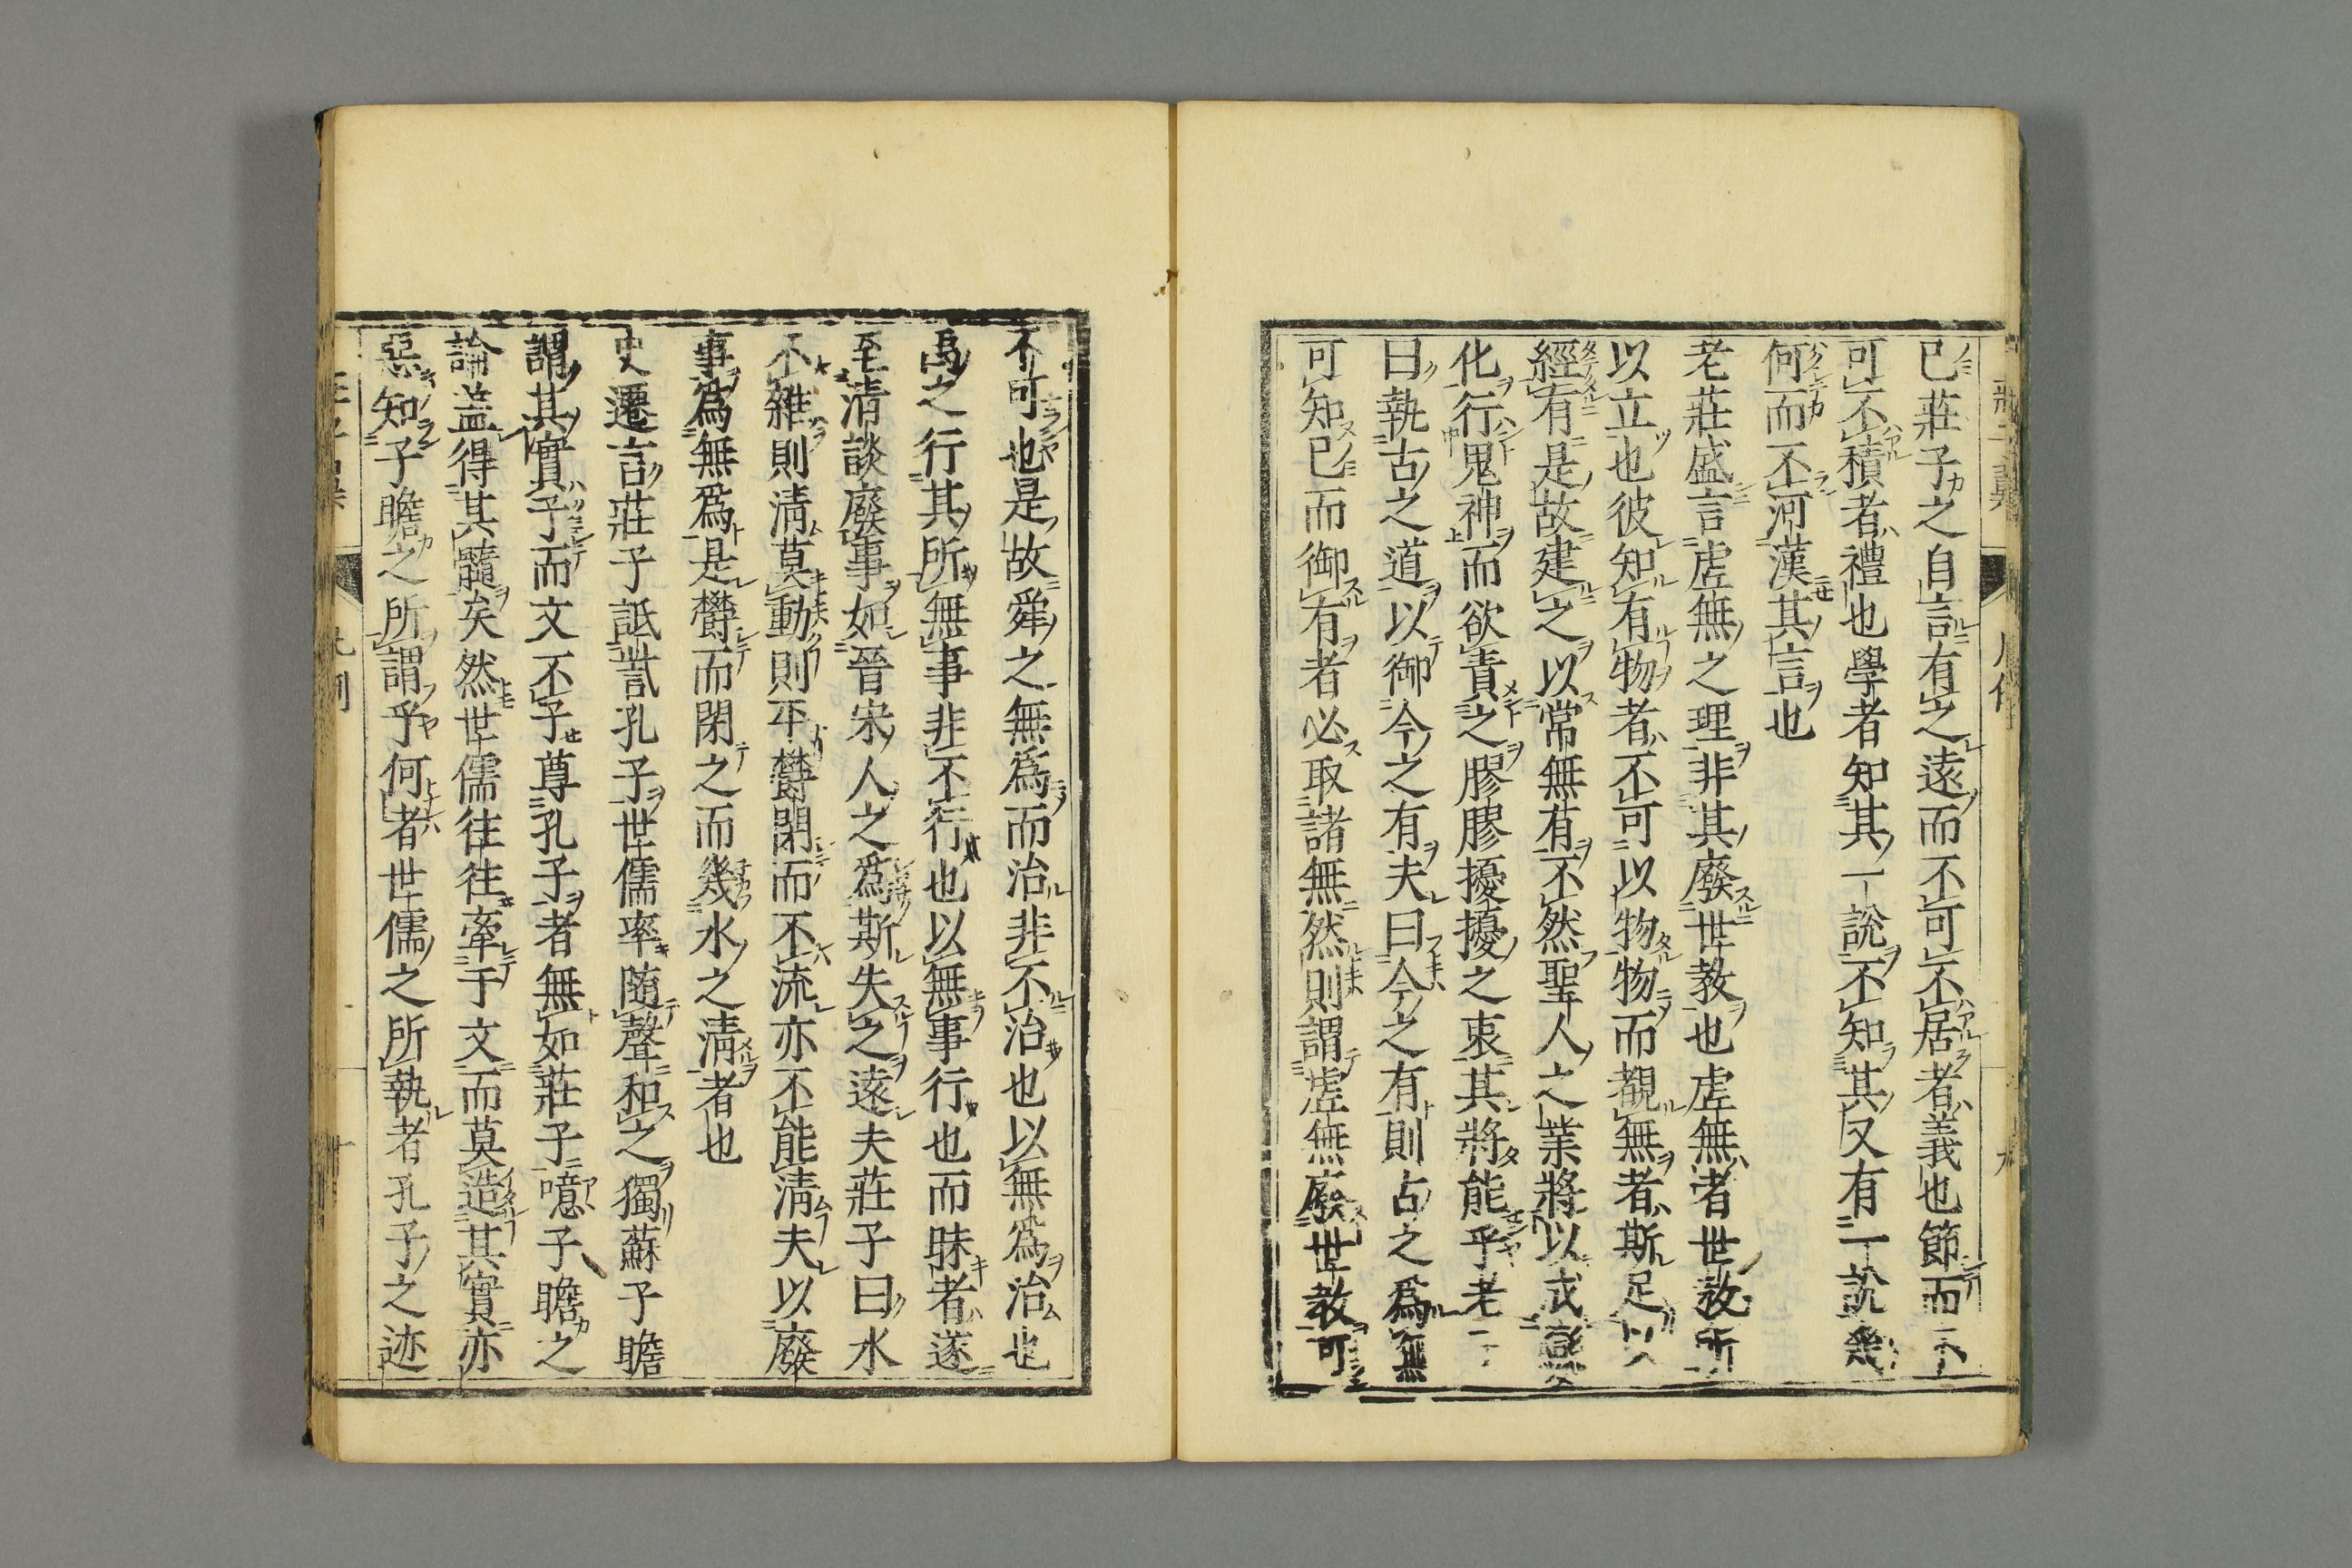 已莊子之自言有之遠而不可不居者義也節而不
可不積者禮也學者知其一說不知其又有一說幾
何而不河漢其言也
老莊盛言虛無之理非其廢世教也虛無者世教所
以立也彼知有物者不可以物物而覩無者斯足以
經有是故建之以常無有不然聖人之業將以成變
化行鬼神而欲責之膠膠擾擾之衷其將能乎老
曰執古之道以御今之有夫曰今之有則古之爲無
可知已而御有者必取諸無然則謂虛無廢世教可
不可也是故舜之無爲而治非不治也以無爲治也
禹之行其所無事非不行也以無事行也而昧者遂
至清談廢事如晉宋人之爲斯失之遠夫莊子曰水
不雜則清莫動則平欝閉而不流亦不能清夫以廢
事爲無爲是欝而閉之而幾水之清者也
史遷言莊子詆訾孔子世儒率隨聲和之獨蘇子瞻
謂其實予而文不予尊孔子者無如莊子噫子瞻之
論盖得其髓矣然世儒往往牽于文而莫造其實亦
惡知子瞻之所謂乎何者世儒之所執者孔子之迹